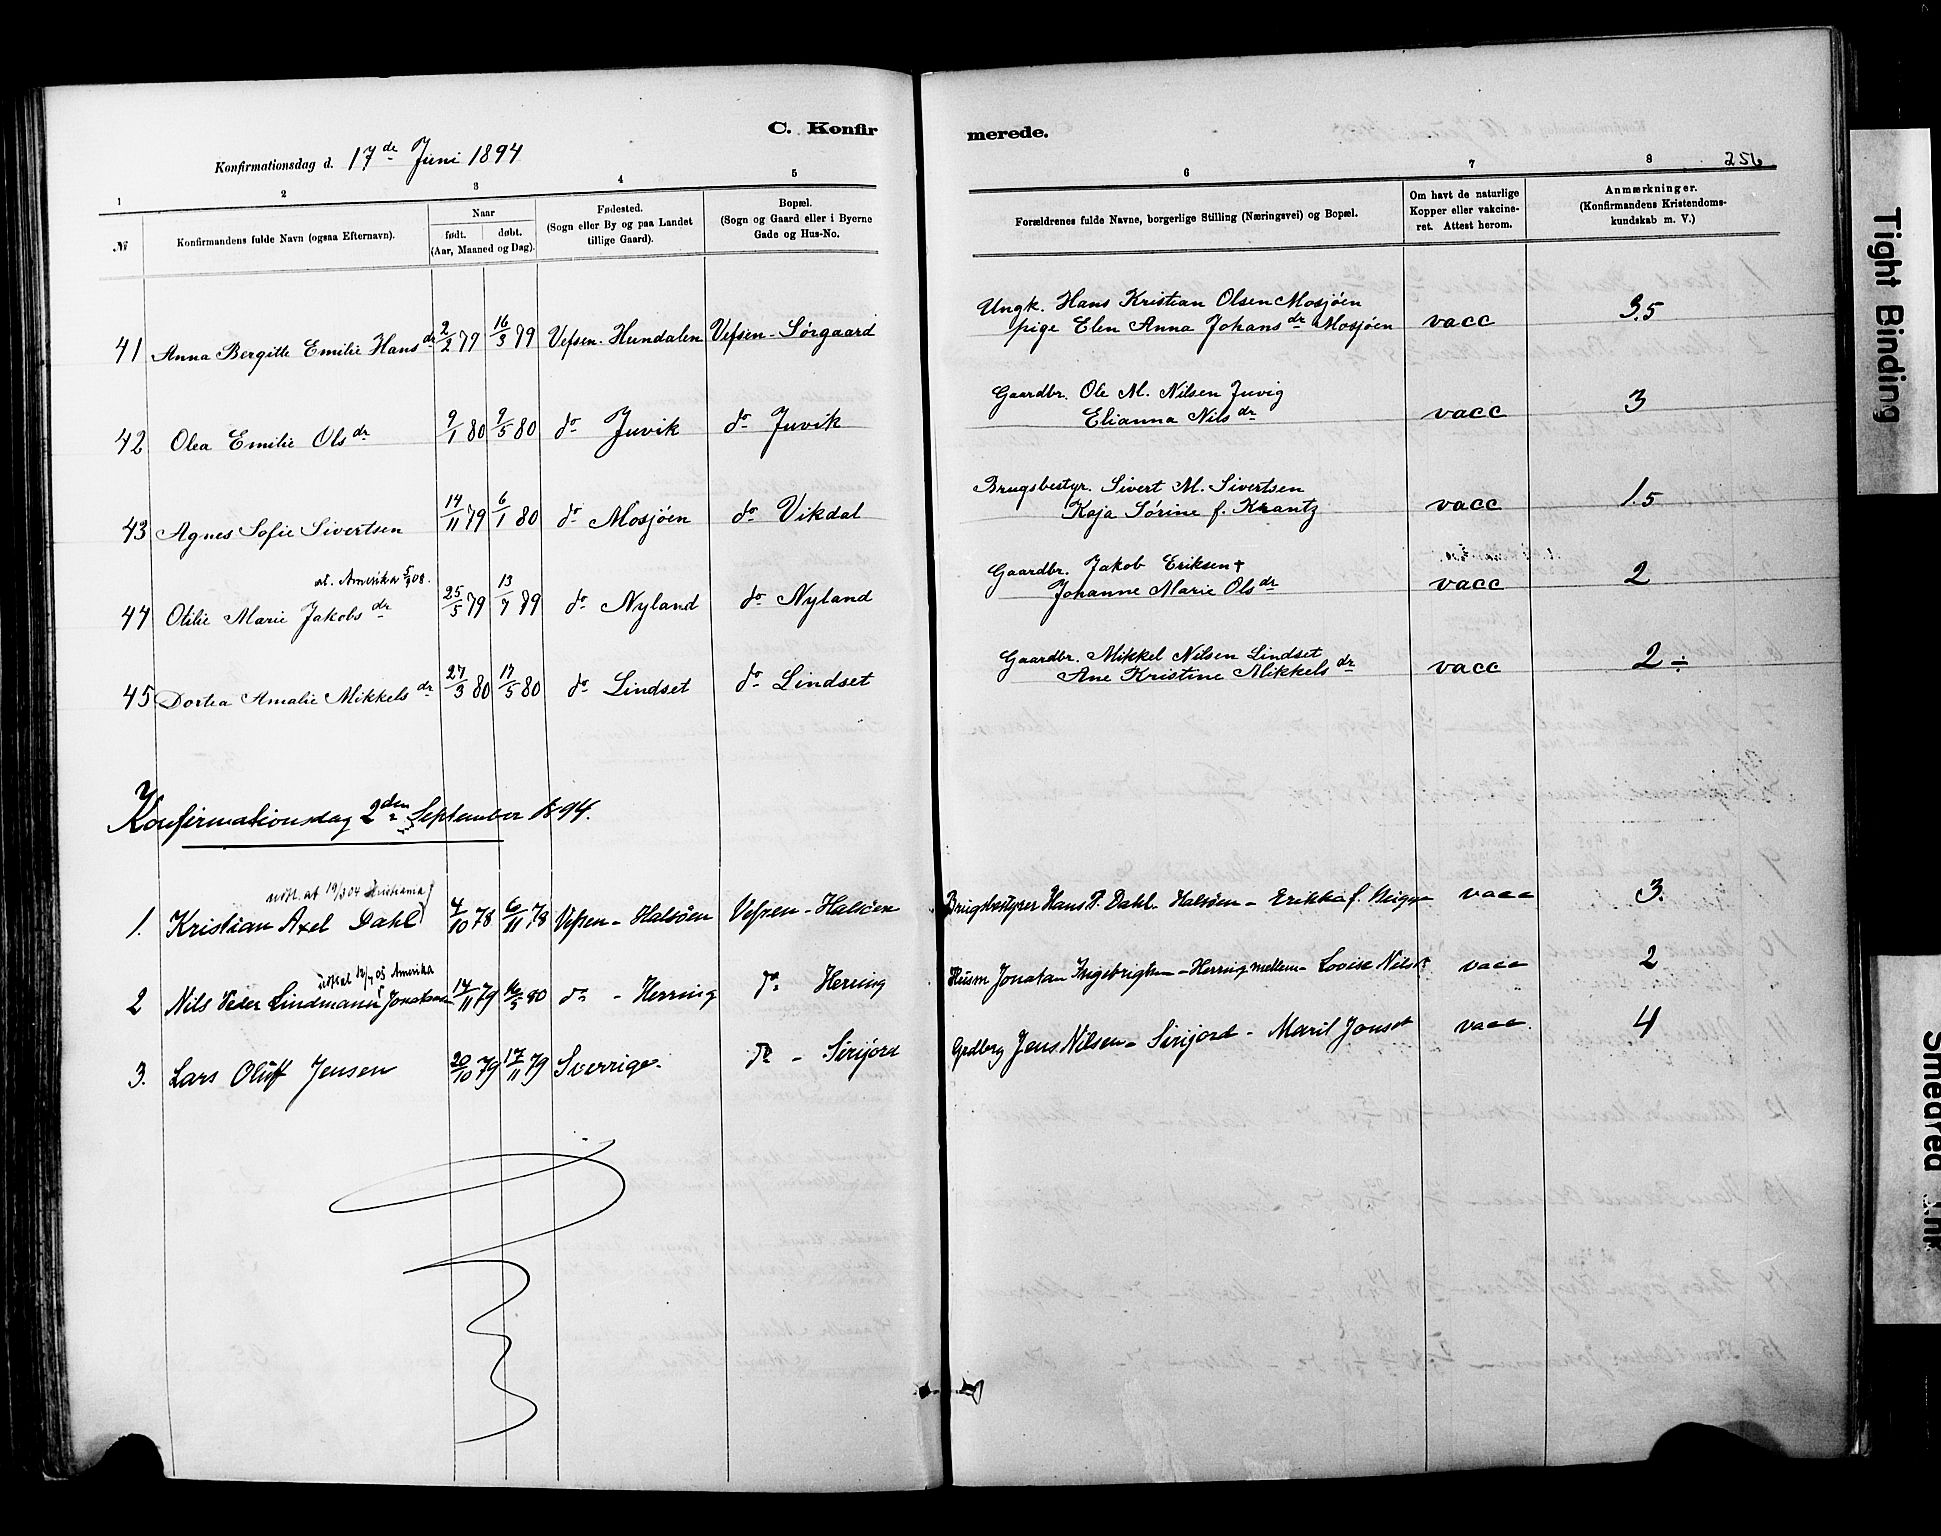 C. Konfir
merede.
Konfirmationsdag d. 17de Juni 1894
256
1 2 3 4 5 6 7 8
№
Konfirmandens fulde Navn (ogsaa Efternavn).
Naar
født. døbt.
(Aar, Maaned og Dag).
Fødested.
(Sogn eller By og paa Landet
tillige Gaard).
Bopæl.
(Sogn og Gaard eller i Byerne
Gade og Hus-No.
Forældrenes fulde Navne, borgerlige Stilling (Næringsvei) og Bopæl.
Om havt de naturlige
Kopper eller vakcine-
ret. Attest herom.
Anmærkninger.
(Konfirmandens Kristendoms-
kundskab m. V.)
Ungk. Hans Kristian Olsen Mosjöen
41 Anna Bergitte Emilie Hansdr 2/2 79 16/3 79 Vefsen - Hundalen Vefsen - Sörgaard pige Elen Anna Johansdr Mosjöen vacc 3.5
Gaardbr. Ole M. Nilsen Juvig
42 Olea Emilie Olsdr 9/1 80 9/5 80 do Juvik do Juvik Elianna Nilsdr vacc 3
Brugsbestyr. Sivert M. Sivertsen
43 Agnes Sofie Sivertsen 14/11 79 6/1 80 do Mosjöen do Vikdal Kaja Sörine f. Krantz vacc 1.5
at. Amerika 08.
Gaardbr. Jakob Eriksen †
44 Otilie Marie Jakobsdr 25/5 79 13/7 89 do Nyland do Nyland Johanne Marie Olsdr vacc 2
Gaardbr. Mikkel Nilsen Lindset
45 Dortea Amalie Mikkelsdr 27/3 80 17/5 80 do Lindset do Lindset Ane Kristine Mikkelsdr vacc 2 ÷
Konfirmationsdag 2den September 1894.
udst. at 19/3 04 Kristiania
1. Kristian Axel Dahl 4/10 78 6/11 78 Vefsen - Halsöen Vefsen - Halsöen Brugsbestyrer Hans P. Dahl. Halsöen - Erikka f. vacc 3.
udst. at 12/4 05 Amerika
2 Nils Peder Lindmann Jonatansen 14/11 79 16/5 80 do - Herring do Herring Husm Jonatan Ingebrigtsen - Herring mellem - Lovise Nilsdr vacc 2
3. Lars Oluff Jensen 20/10 79 17/11 79 Sverrige. do - Sirijord Grdbrg Jens Nilsen - Sirijord - Marit Jonsdr vacc. 4
Tight Binding
Smeared Ink